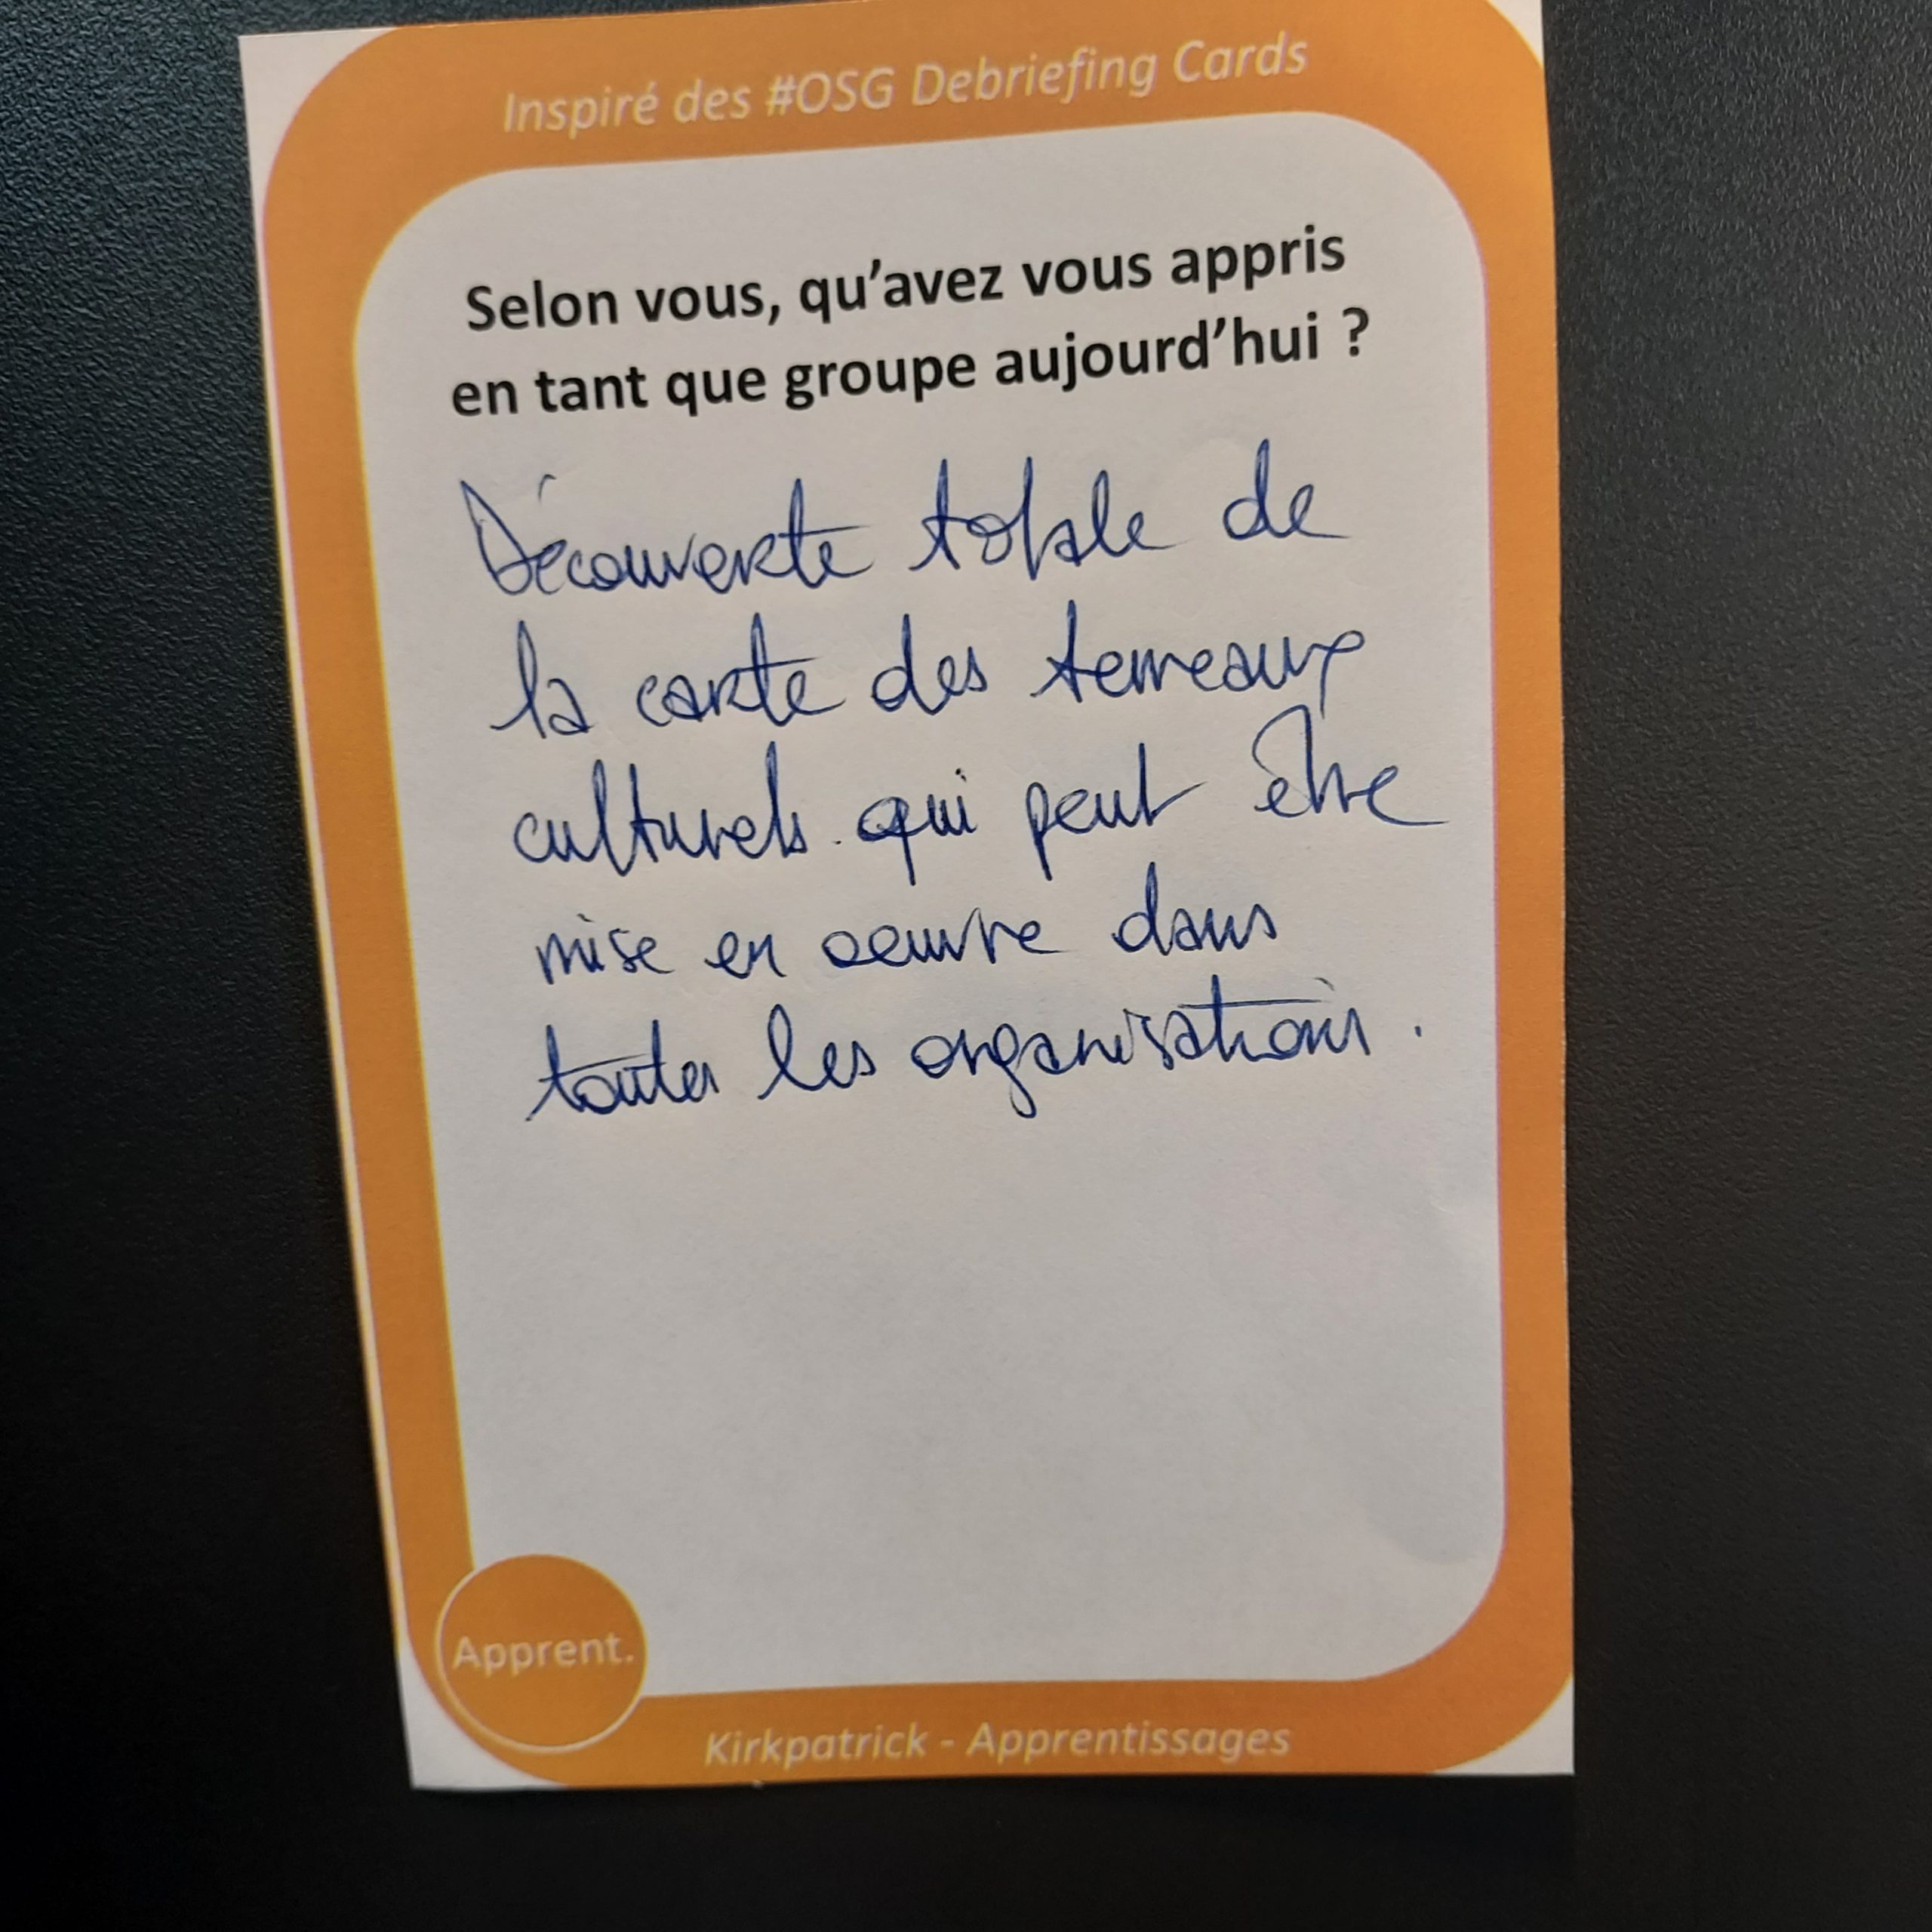 Inspiré des #OSG Debriefing Cards
Selon vous, qu'avez vous appris
en tant que groupe aujourd'hui ?
Découverte totale de
la carte des terreaux
culturels qui peut être
mise en oeuvre dans
toutes les organisations.
Apprent.
Kirkpatrick - Apprentissages